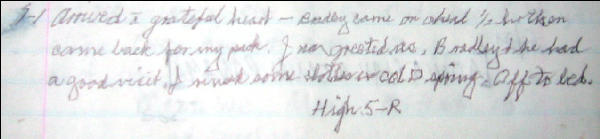 5-1 Arrived c̄ grateful heart – Bradley came on ahead ½ hr then
came back for my pack. J greeted us, Bradley & he had
a good visit. I rinsed some clothes in cold spring. Off to bed.
High 5-R